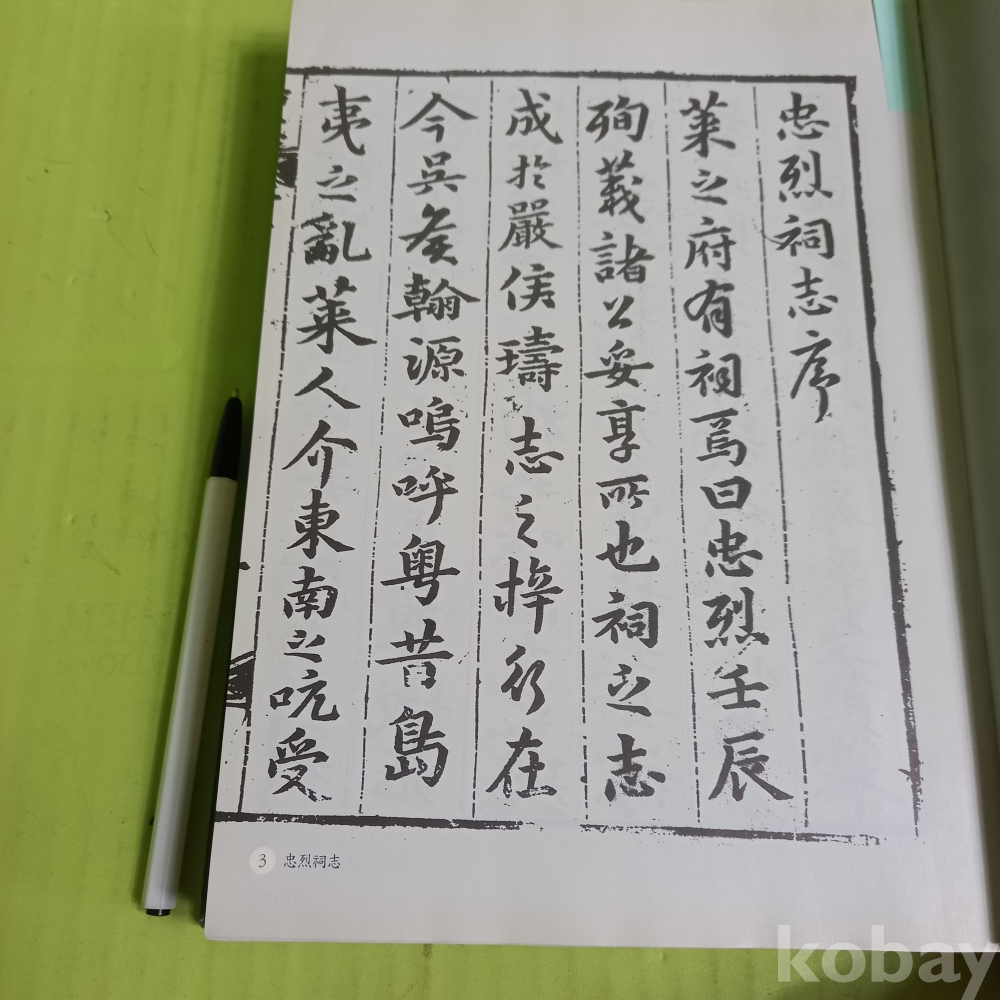 忠烈祠志序
萊之府有祠焉曰忠烈壬辰
殉義諸公妥享所也祠之志
成於嚴侯璹志之梓行在
今吳侯翰源嗚呼粤昔島
夷之亂萊人介東南之吭受
3 忠烈祠志
kobay